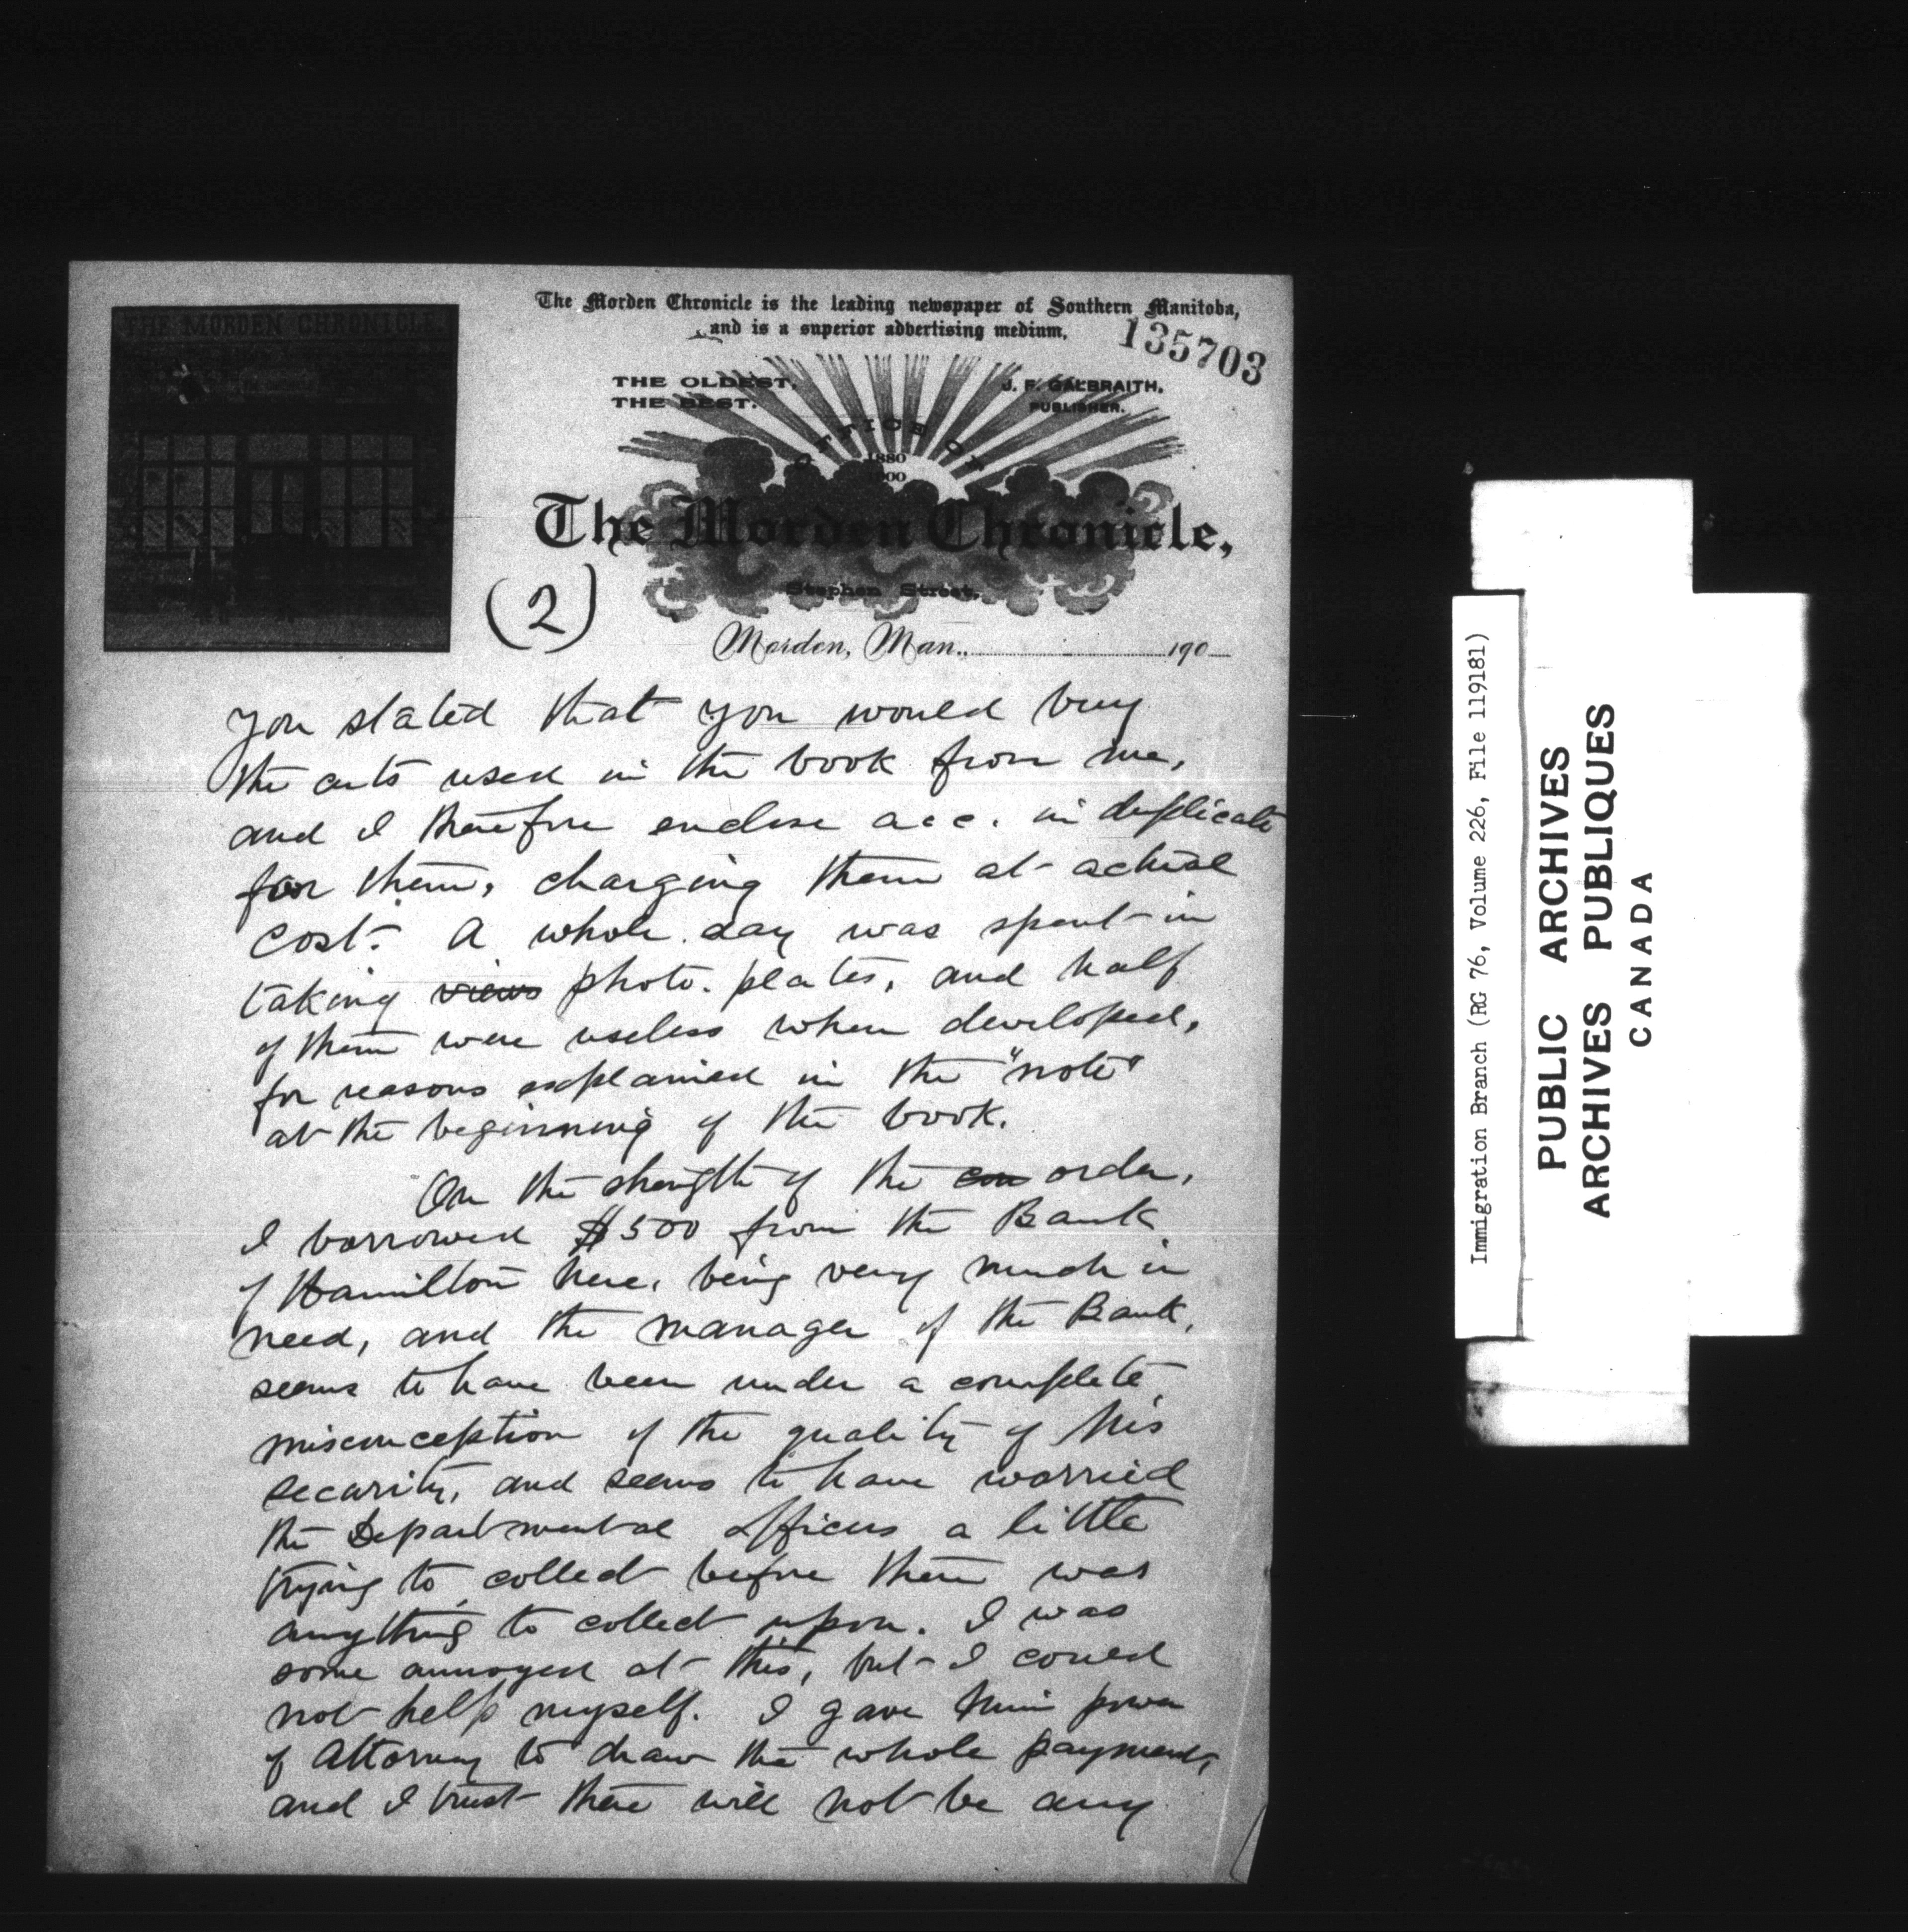 The Morden Chronicle is the leading newspaper of Southern Manitoba,
and is a superior advertising medium.
135703
THE MORDEN CHRONICLE.
THE OLDEST,
THE BEST.
J. F. GALBRAITH,
PUBLISHER.
OFFICE OF
1880
1900
The Morden Chronicle,
Stephen Street.
(2)
Morden, Man., 190
you stated that you would buy
the cuts used in the book from me,
and I therefore enclose acc. in duplicate
for them, charging them at actual
cost. A whole day was spent in
taking views photo. plates, and half
of them were useless when developed,
for reasons explained in the "note"
at the beginning of the book.
On the strength of the con order,
I borrowed $500 from the Bank
of Hamilton here, being very much in
need, and the manager of the Bank,
seems to have been under a complete
misconception of the quality of his
security, and seems to have worried
the Departmental officers a little
trying to collect before there was
anything to collect upon. I was
some annoyed at this, but I could
not help myself. I gave him power
of Attorney to draw the whole payment,
and I trust there will not be any
Immigration Branch (RG 76, Volume 226, File 119181)
PUBLIC ARCHIVES
ARCHIVES PUBLIQUES
CANADA